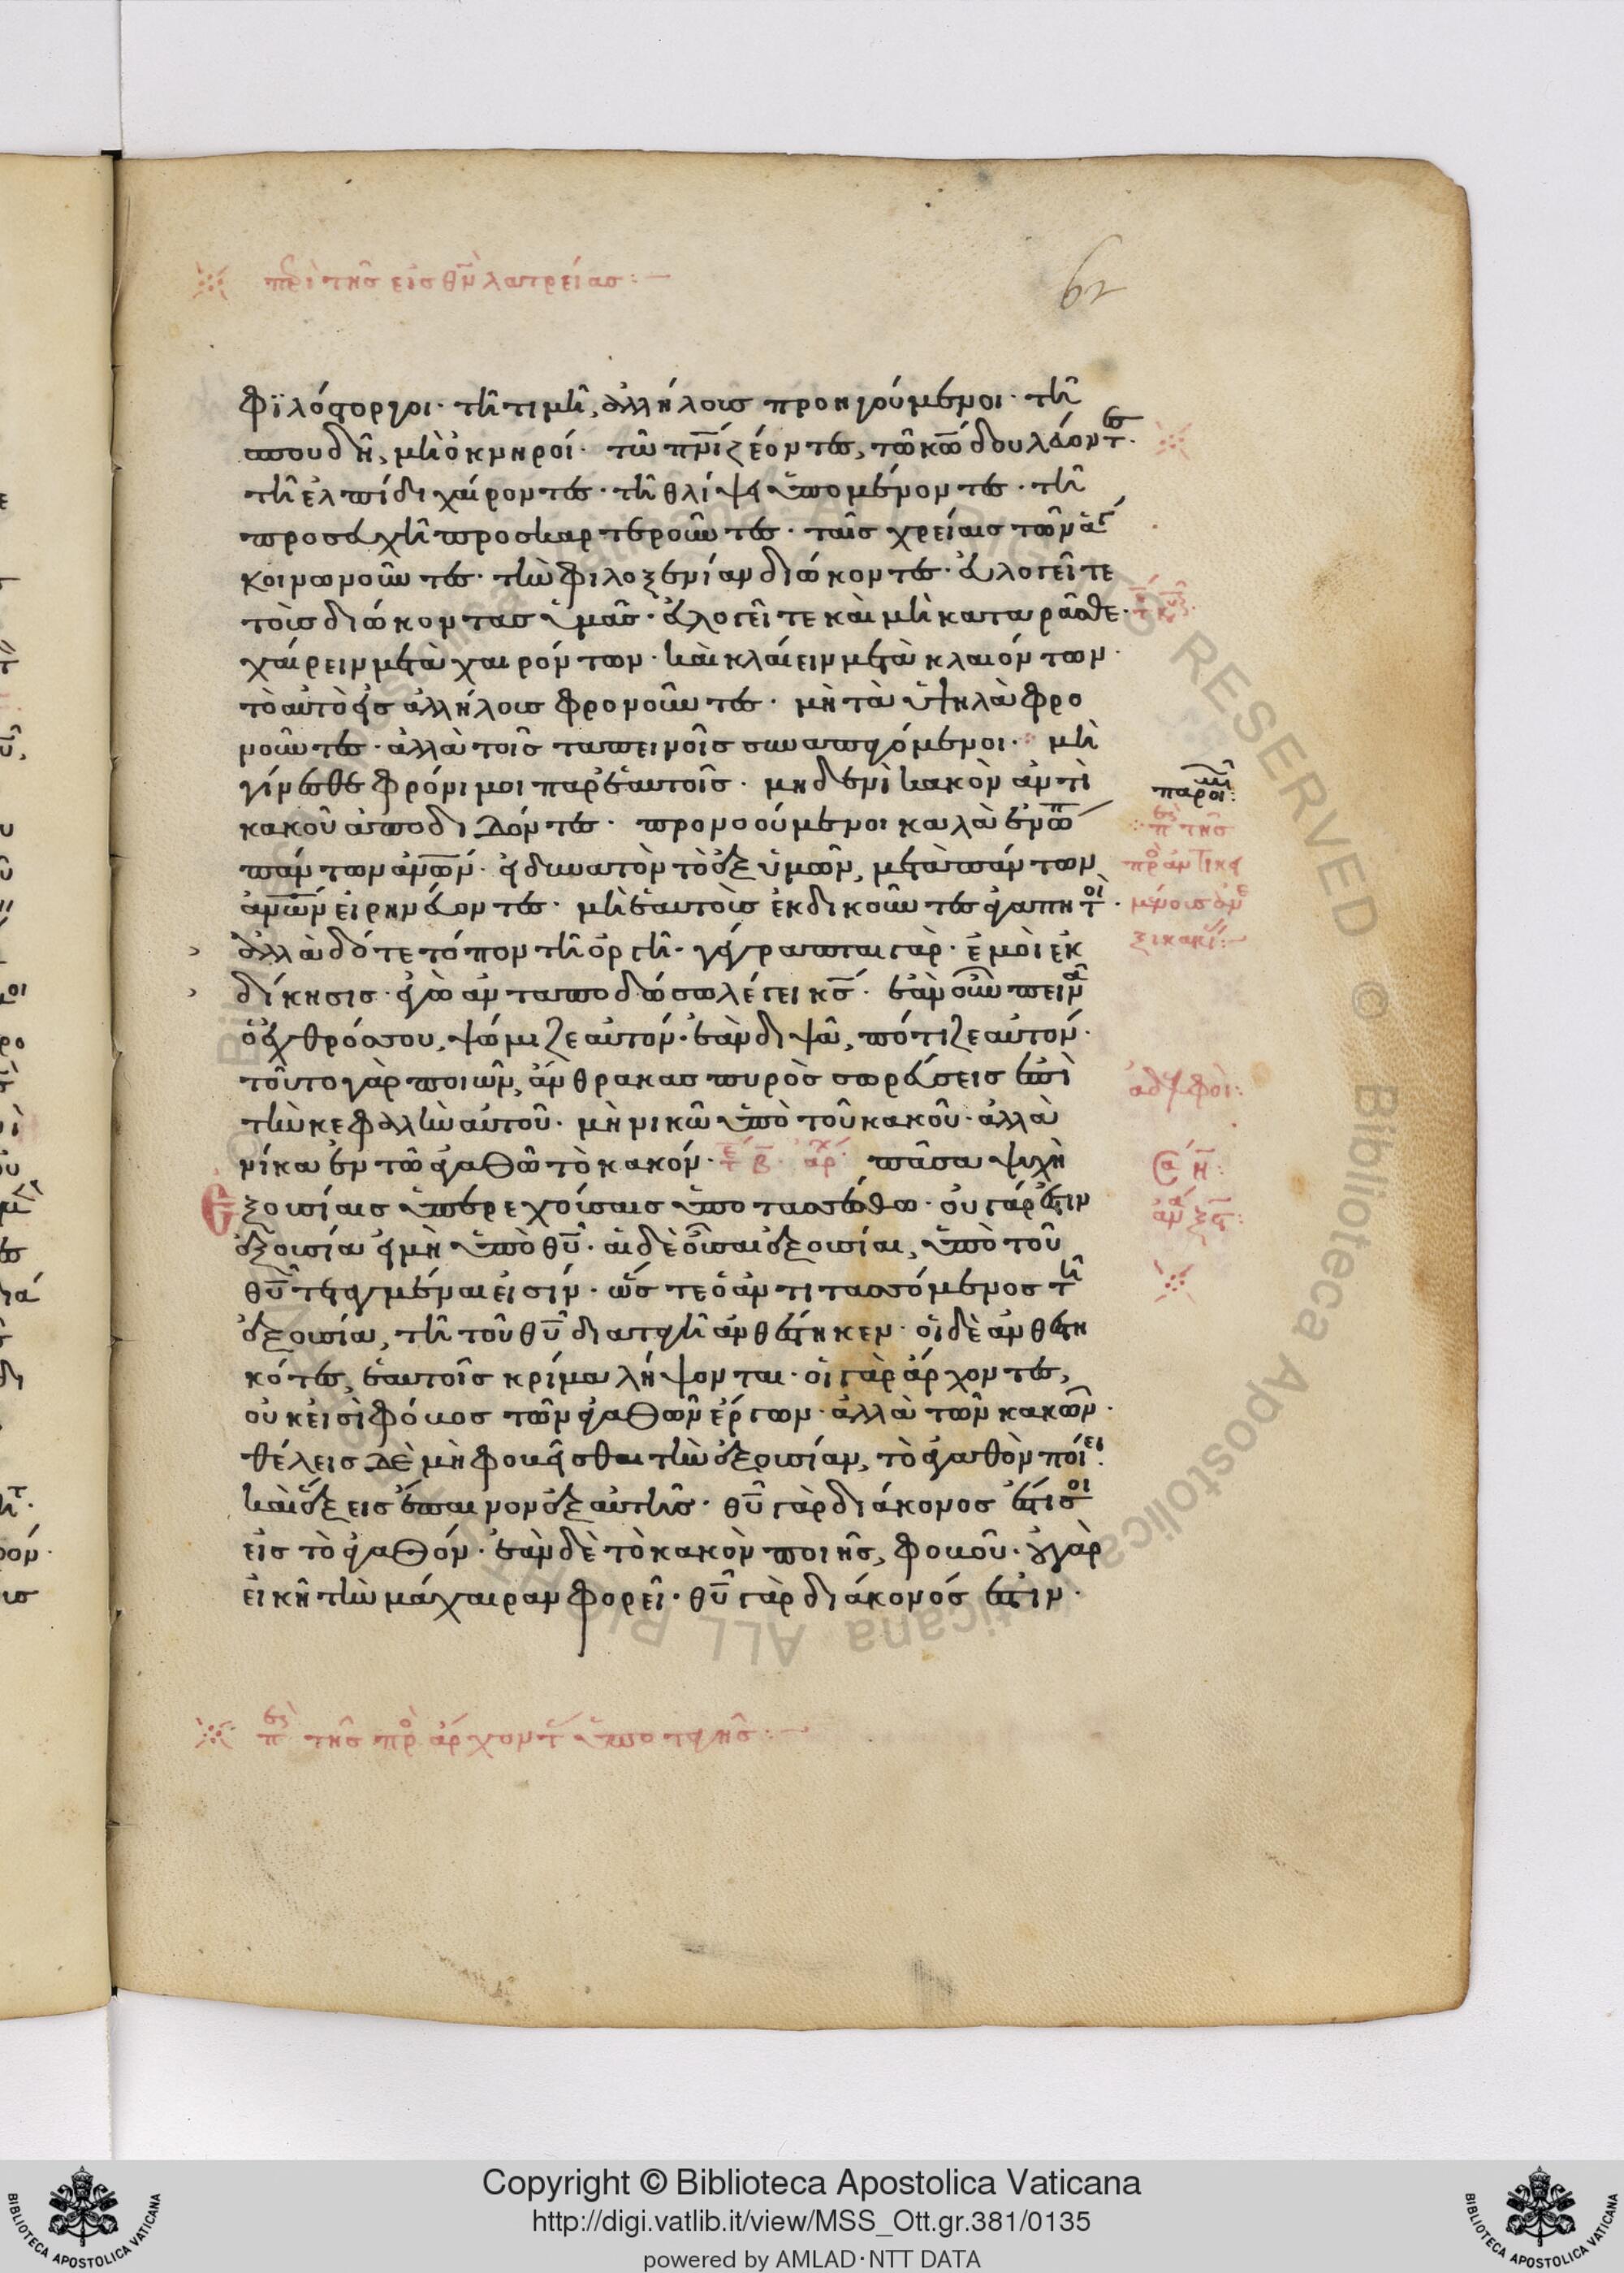 πε̅ρὶ τῆς εἰς θν̅ λατρείας:
62
φϊλόστοργοι· τῆ τιμῆ, ἀλλήλους προηγούμενοι· τῆ
σπουδῆ, μὴ ὀκνηροί· τῶ πνι̅ ζέοντες, τῶ κω̅ δουλεύοντ(ες)·
τῆ ἐλπίδι χαίροντες· τῆ θλίψει ὑπομένοντες· τῆ
προσευχῆ προσκαρτεροῦντες· ταῖς χρείαις τῶν ἁγί
κοινωνοῦντες· τὴν φιλοξενίαν διώκοντες· εὐλογεῖτε
τοὺς διώκοντας ὑμᾶς· εὐλογεῖτε καὶ μὴ καταρᾶσθε·
χαίρειν μετὰ χαιρόντων· καὶ κλαίειν μετὰ κλαιόντων·
τὸ αὐτὸ εἰς ἀλλήλους φρονοῦντες· μὴ τὰ ὑψηλὰ φρο
νοῦντες· ἀλλὰ τοῖς ταπεινοῖς συναπαγόμενοι· μὴ
γίνεσθε φρόνιμοι παρ' ἑαυτοῖς· μηδενὶ κακὸν ἀντὶ
κακοῦ ἀποδιδόντες· προνοούμενοι καλὰ ἐνώπ
πάντων ἀνω̅ν· εἰ δυνατὸν τὸ ἐξ ὑμῶν, μετὰ πάντων
ἀνω̅ν εἰρηνεύοντες· μὴ ἑαυτοὺς ἐκδικοῦντες ἀγαπητοὶ·
ἀλλὰ δότε τόπον τῆ ὀργῆ· γέγραπται γὰρ· ἐμοὶ ἐκ
δίκησις· ἐγὼ ἀνταποδώσω λέγει κς̅· ἐὰν οὖν πεινᾶ
ὁ ἐχθρός σου, ψώμιζε αὐτόν· ἐὰν διψᾶ, πότιζε αὐτόν·
τοῦτο γὰρ ποιῶν, ἄνθρακας πυρὸς σωρεύσεις ἐπὶ
τὴν κεφαλὴν αὐτοῦ· μὴ νικῶ ὑπὸ τοῦ κακοῦ· ἀλλὰ
νίκα ἐν τῶ ἀγαθῶ τὸ κακόν· πᾶσα ψυχὴ
ἐξουσίαις ὑπερεχούσαις ὑποτασσέσθω· οὐ γάρ ἐστιν
ἐξουσία εἰ μὴ ὑπὸ θυ̅· αἱ δὲ οὖσαι ἐξουσίαι, ὑπὸ τοῦ
θυ̅ τεταγμέναι εἰσίν· ὥστε ὁ ἀντιτασσόμενος τῆ
ἐξουσία, τῆ τοῦ θυ̅ διαταγῆ ἀνθέστηκεν· οἱ δὲ ἀνθεστη
κότες, ἑαυτοῖς κρίμα λήψονται· οἱ γὰρ ἄρχοντες,
οὐκ εἰσὶ φόβος τῶν ἀγαθῶν ἔργων· ἀλλὰ τῶν κακῶν·
θέλεις δὲ μὴ φοβεῖσθαι τὴν ἐξουσίαν, τὸ ἀγαθὸν ποίει·
καὶ ἕξεις ἔπαινον ἐξ αὐτῆς· θυ̅ γὰρ διάκονος ἐστί σοι
εἰς τὸ ἀγαθόν· ἐὰν δὲ τὸ κακὸν ποιῆς, φοβοῦ· οὐ γὰρ
εἰκῆ τὴν μάχαιραν φορεῖ· θυ̅ γὰρ διάκονός ἐστιν·
παροιμι:
ἀδελφοὶ:
περὶ τῆς πρὸ(ς) ἄρχοντ(ας) ὑποταγῆς:
Copyright © Biblioteca Apostolica Vaticana
http://digi.vatlib.it/view/MSS_Ott.gr.381/0135
powered by AMLAD·NTT DATA
BIBLIOTECA APOSTOLICA VATICANA
BIBLIOTECA APOSTOLICA VATICANA